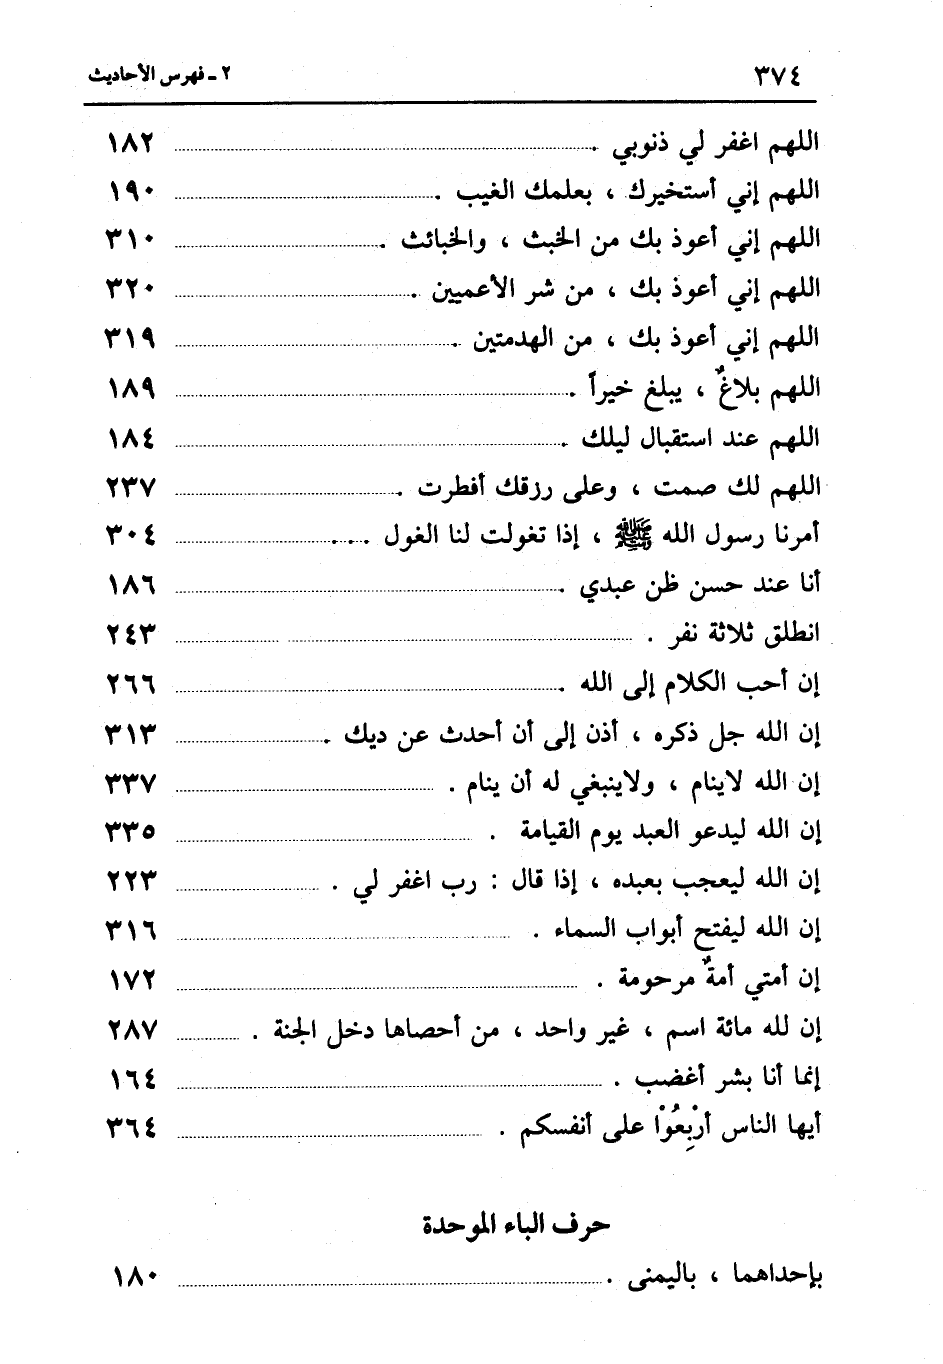 ٣٧٤ ٢ ـ فهرس الأحاديث
اللهم اغفر لي ذنوبي . ١٨٢
اللهم إني أستخيرك ، بعلمك الغيب . ١٩٠
اللهم إني أعوذ بك من الخبث ، والخبائث . ٣١٠
اللهم إني أعوذ بك ، من شر الأعميين . ٣٢٠
اللهم إني أعوذ بك ، من الهدمتين . ٣١٩
اللهم بلاغٌ ، يبلغ خيراً . ١٨٩
اللهم عند استقبال ليلك . ١٨٤
اللهم لك صمت ، وعلى رزقك أفطرت . ٢٣٧
أمرنا رسول الله ﷺ ، إذا تغولت لنا الغول . . . ٣٠٤
أنا عند حسن ظن عبدي . ١٨٦
انطلق ثلاثة نفر . ٢٤٣
إن أحب الكلام إلى الله . ٢٦٦
إن الله جل ذكره ، أذن إلى أن أحدث عن ديك . ٣١٣
إن الله لاينام ، ولاينبغي له أن ينام . ٣٣٧
إن الله ليدعو العبد يوم القيامة . ٣٣٥
إن الله ليعجب بعبده ، إذا قال : رب اغفر لي . ٢٢٣
إن الله ليفتح أبواب السماء . ٣١٦
إن أمتي أمةٌ مرحومة . ١٧٢
إن لله مائة اسم ، غير واحد ، من أحصاها دخل الجنة . ٢٨٧
إنما أنا بشر أغضب . ١٦٤
أيها الناس أرْبِعُوْا على أنفسكم . ٣٦٤
حرف الباء الموحدة
بإحداهما ، باليمنى . ١٨٠